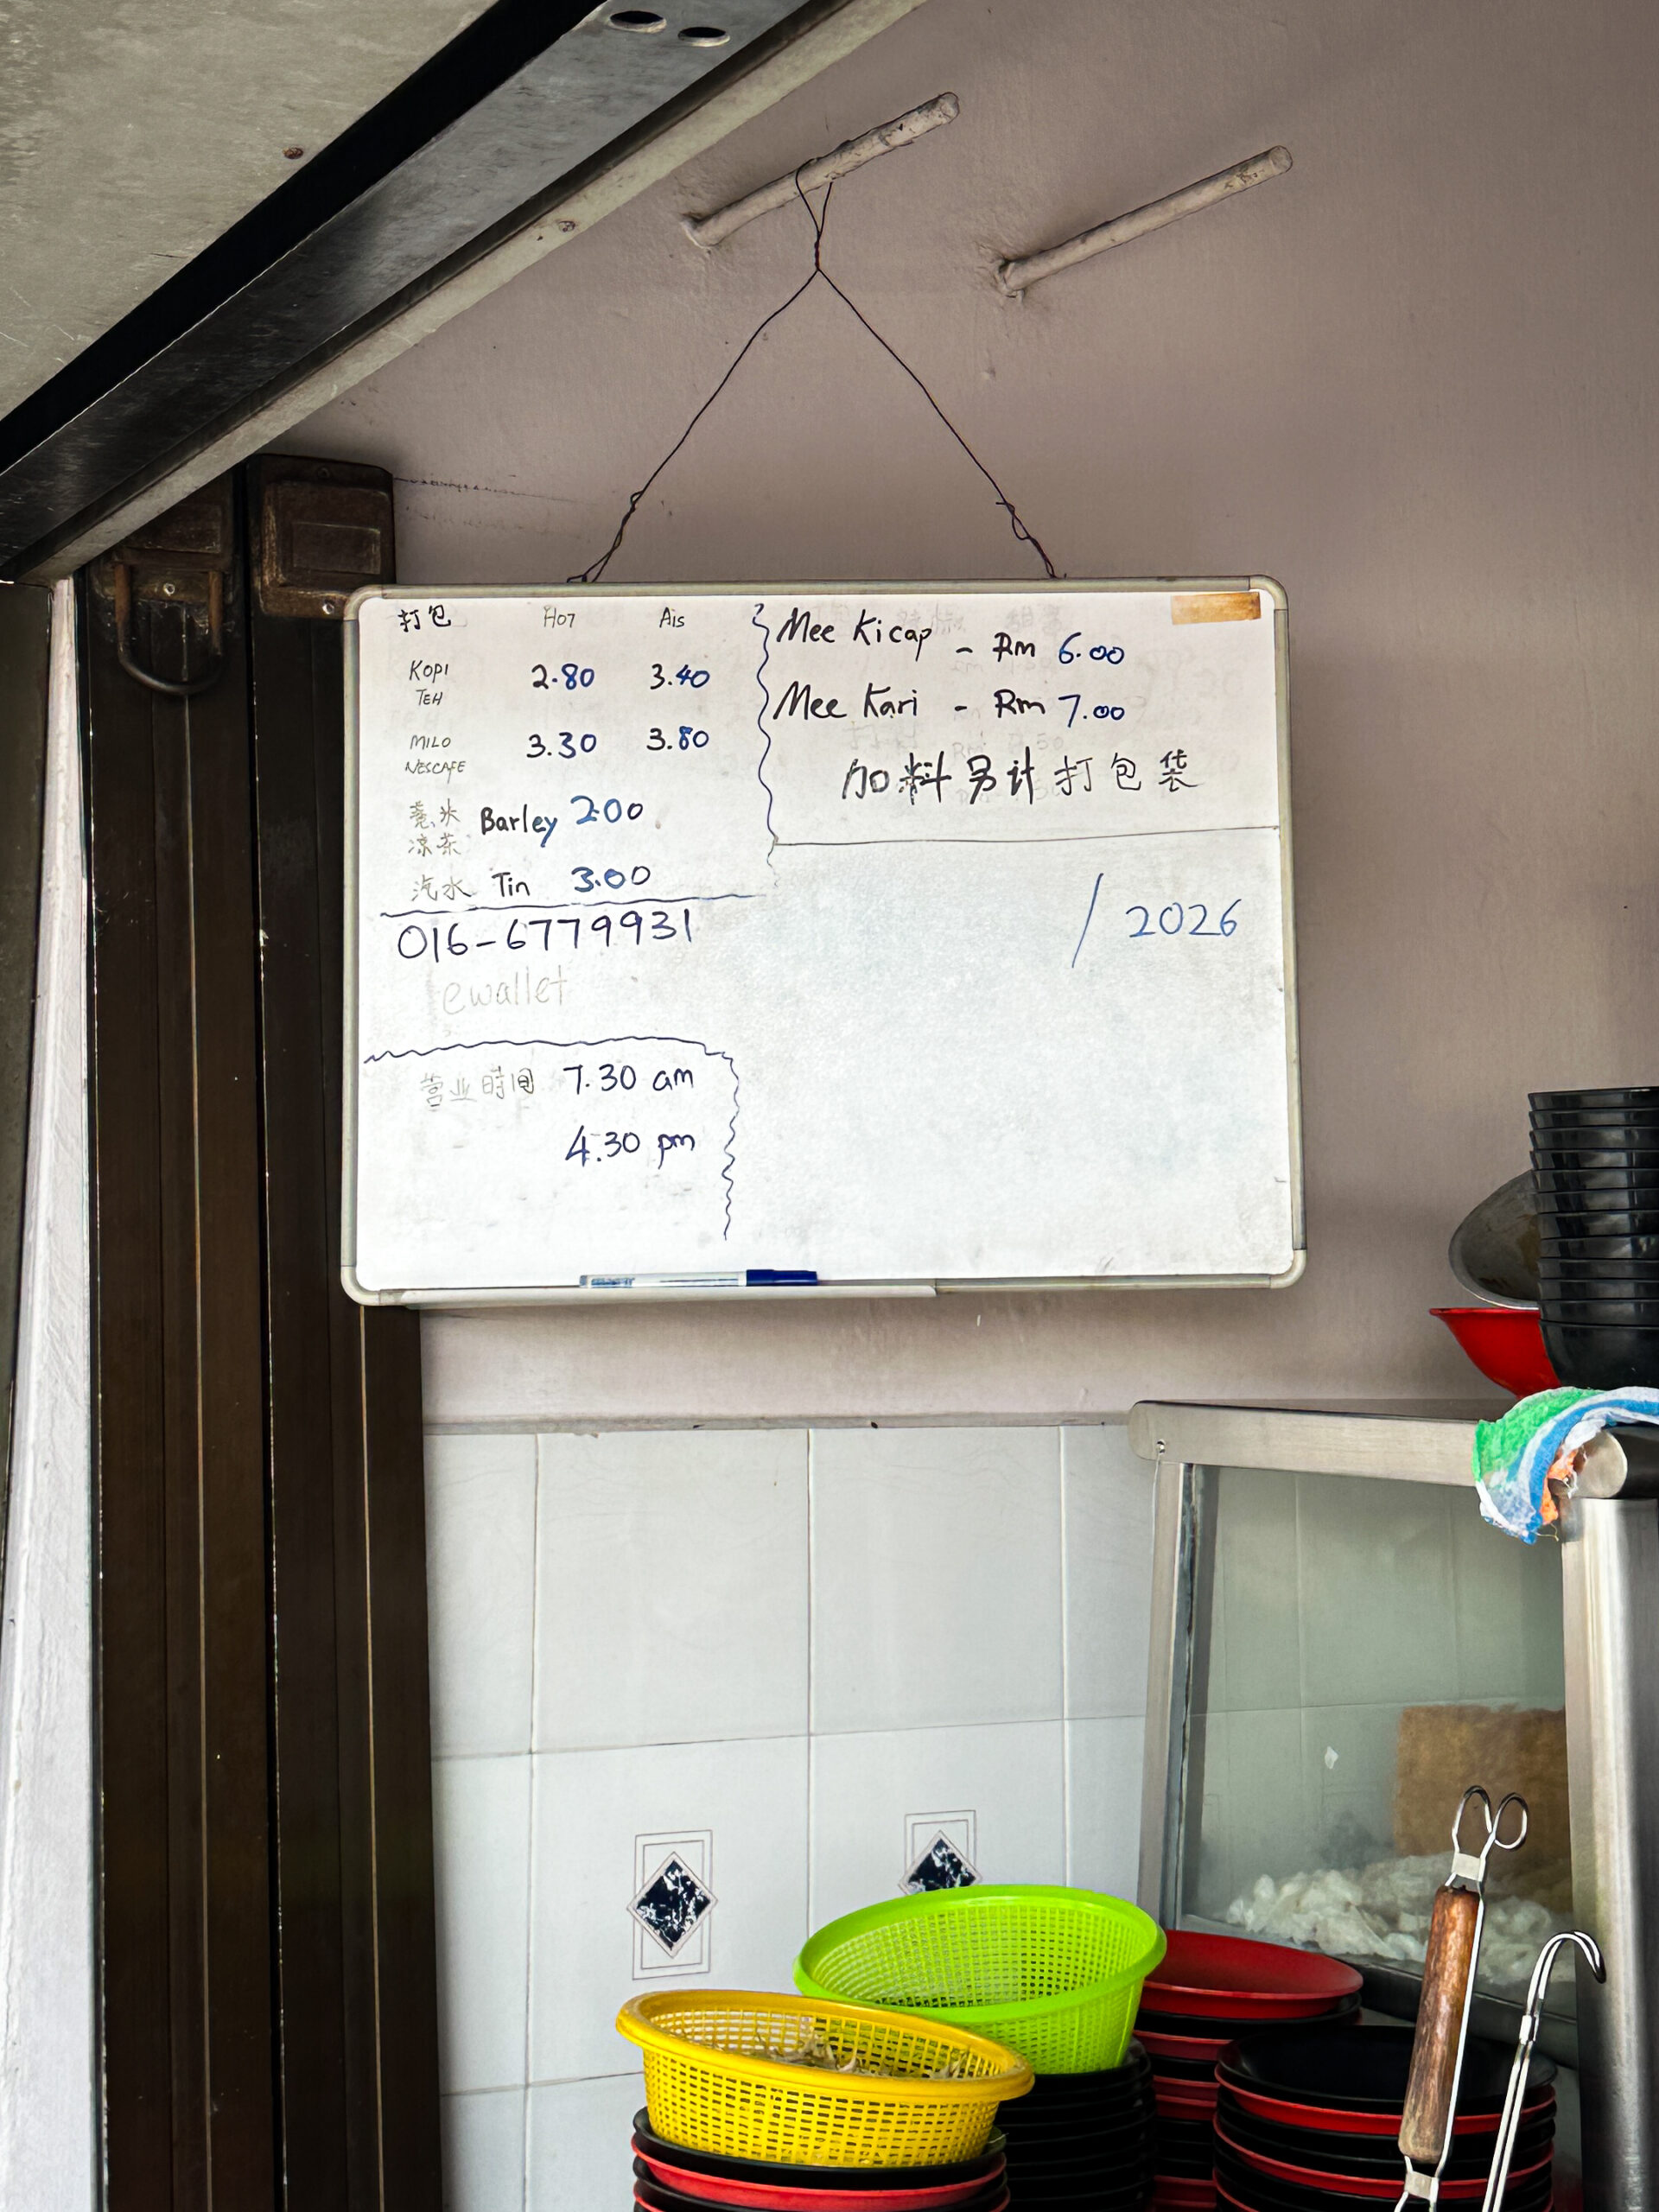 打包 HOT Ais
KOPI 2.80 3.40
TEH
MILO 3.30 3.80
NESCAFE
薏米 Barley 2.00
凉茶
汽水 Tin 3.00
016-6779931
ewallet
营业時间 7.30 am
4.30 pm
Mee Kicap - Rm 6.00
Mee Kari - Rm 7.00
加料另计打包袋
/ 2026